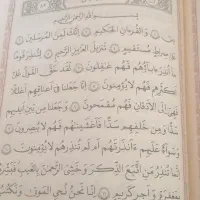 بِسْمِ اللَّهِ الرَّحْمَٰنِ الرَّحِيمِ
يسٓ ۝ وَالْقُرْآنِ الْحَكِيمِ ۝ إِنَّكَ لَمِنَ الْمُرْسَلِينَ ۝
صِرَاطٍ مُسْتَقِيمٍ ۝ تَنْزِيلَ الْعَزِيزِ الرَّحِيمِ ۝ لِتُنْذِرَ قَوْمًا
أُنْذِرَ آبَاؤُهُمْ فَهُمْ غَافِلُونَ ۝ لَقَدْ حَقَّ الْقَوْلُ عَلَىٰ
أَكْثَرِهِمْ فَهُمْ لَا يُؤْمِنُونَ ۝ إِنَّا جَعَلْنَا فِي
فَهِيَ إِلَى الْأَذْقَانِ فَهُمْ مُقْمَحُونَ ۝ وَجَعَلْنَا مِنْ بَيْنِ أَيْدِيهِمْ
سَدًّا وَمِنْ خَلْفِهِمْ سَدًّا فَأَغْشَيْنَاهُمْ فَهُمْ لَا يُبْصِرُونَ ۝
وَسَوَاءٌ عَلَيْهِمْ أَأَنْذَرْتَهُمْ أَمْ لَمْ تُنْذِرْهُمْ لَا يُؤْمِنُونَ ۝
تُنْذِرُ مَنِ اتَّبَعَ الذِّكْرَ وَخَشِيَ الرَّحْمَٰنَ بِالْغَيْبِ فَبَشِّرْهُ
بِمَغْفِرَةٍ وَأَجْرٍ كَرِيمٍ ۝ إِنَّا نَحْنُ نُحْيِي الْمَوْتَىٰ وَنَكْتُبُ